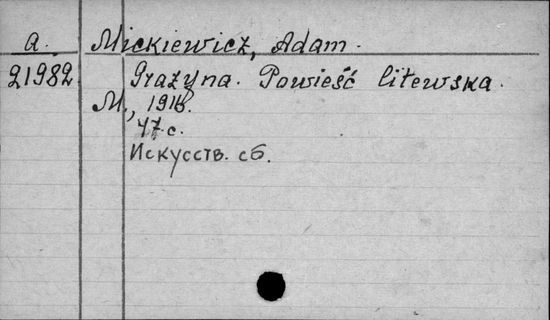 a. Mickiewicz, Adam.
21982 Grażyna. Powieść litewska.
M., 1916.
47 c.
Искусств. сб.